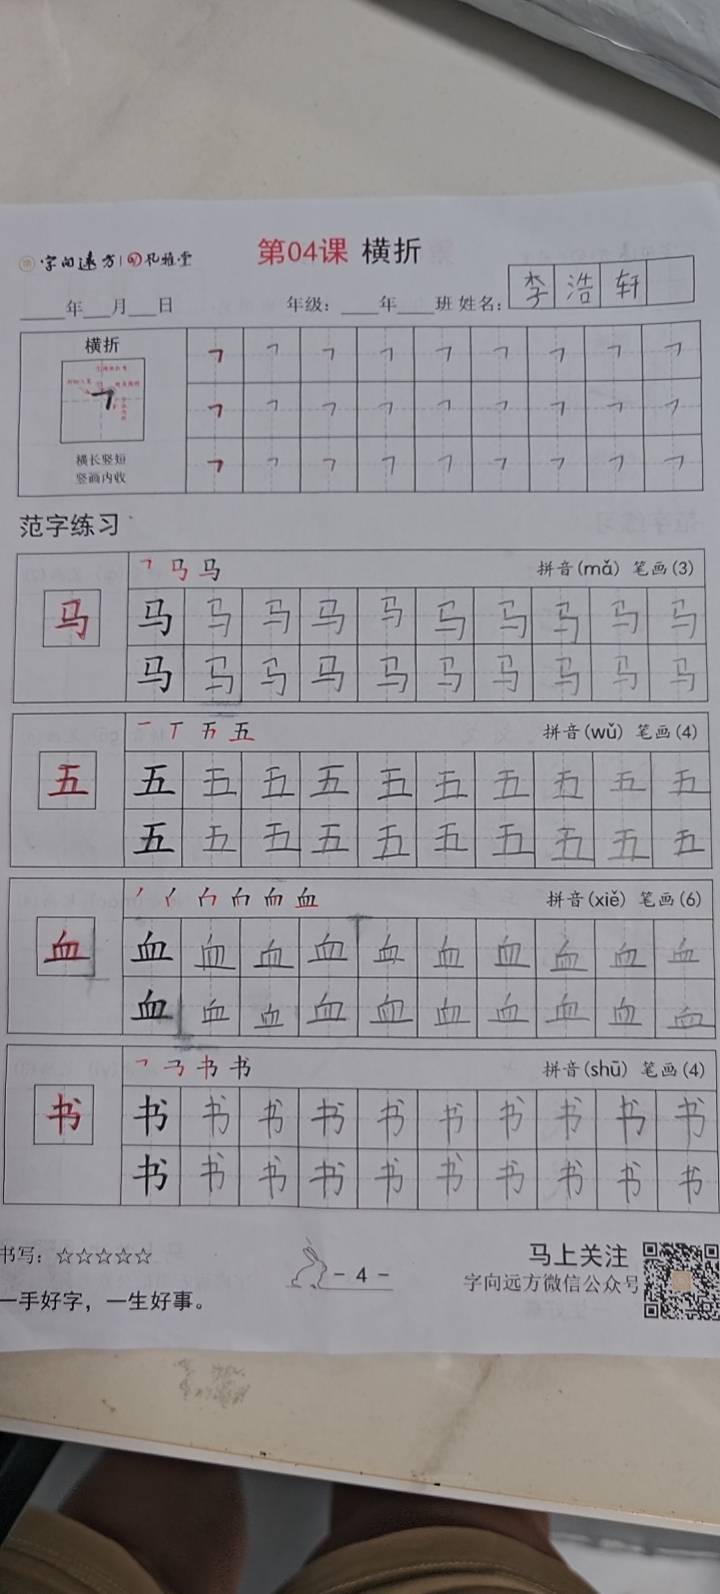 字向远方 孔雅堂
第04课 横折
____年___月___日 年级：____年____班 姓名：李浩轩
横折
横长竖短
竖画内收
范字练习
马 拼音(mǎ) 笔画(3)
马 马 马 马 马 马 马 马 马 马 马
马 马 马 马 马 马 马 马 马 马
五 拼音(wǔ) 笔画(4)
五 五 五 五 五 五 五 五 五 五 五
五 五 五 五 五 五 五 五 五 五
血 拼音(xiě) 笔画(6)
血 血 血 血 血 血 血 血 血 血 血
血 血 血 血 血 血 血 血 血 血
书 拼音(shū) 笔画(4)
书 书 书 书 书 书 书 书 书 书 书
书 书 书 书 书 书 书 书 书 书
书写：☆☆☆☆☆
一手好字，一生好事。
- 4 -
马上关注
字向远方微信公众号